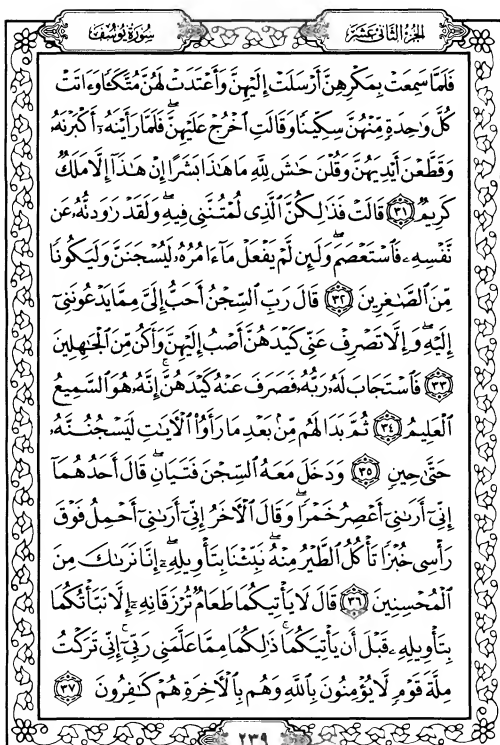 الجزء الثاني عشر
سورة يوسف
فَلَمَّا سَمِعَتْ بِمَكْرِهِنَّ أَرْسَلَتْ إِلَيْهِنَّ وَأَعْتَدَتْ لَهُنَّ مُتَّكَـًٔا وَءَاتَتْ
كُلَّ وَٰحِدَةٍ مِّنْهُنَّ سِكِّينًا وَقَالَتِ ٱخْرُجْ عَلَيْهِنَّۖ فَلَمَّا رَأَيْنَهُۥٓ أَكْبَرْنَهُۥ
وَقَطَّعْنَ أَيْدِيَهُنَّ وَقُلْنَ حَٰشَ لِلَّهِ مَا هَٰذَا بَشَرًا إِنْ هَٰذَآ إِلَّا مَلَكٌ
كَرِيمٌ ٣١ قَالَتْ فَذَٰلِكُنَّ ٱلَّذِى لُمْتُنَّنِى فِيهِۖ وَلَقَدْ رَٰوَدتُّهُۥ عَن
نَّفْسِهِۦ فَٱسْتَعْصَمَۖ وَلَئِن لَّمْ يَفْعَلْ مَآ ءَامُرُهُۥ لَيُسْجَنَنَّ وَلَيَكُونًا
مِّنَ ٱلصَّٰغِرِينَ ٣٢ قَالَ رَبِّ ٱلسِّجْنُ أَحَبُّ إِلَىَّ مِمَّا يَدْعُونَنِىٓ
إِلَيْهِۖ وَإِلَّا تَصْرِفْ عَنِّى كَيْدَهُنَّ أَصْبُ إِلَيْهِنَّ وَأَكُن مِّنَ ٱلْجَٰهِلِينَ
٣٣ فَٱسْتَجَابَ لَهُۥ رَبُّهُۥ فَصَرَفَ عَنْهُ كَيْدَهُنَّۚ إِنَّهُۥ هُوَ ٱلسَّمِيعُ
ٱلْعَلِيمُ ٣٤ ثُمَّ بَدَا لَهُم مِّنۢ بَعْدِ مَا رَأَوُا۟ ٱلْـَٔايَٰتِ لَيَسْجُنُنَّهُۥ
حَتَّىٰ حِينٍ ٣٥ وَدَخَلَ مَعَهُ ٱلسِّجْنَ فَتَيَانِۖ قَالَ أَحَدُهُمَآ
إِنِّىٓ أَرَىٰنِىٓ أَعْصِرُ خَمْرًاۖ وَقَالَ ٱلْـَٔاخَرُ إِنِّىٓ أَرَىٰنِىٓ أَحْمِلُ فَوْقَ
رَأْسِى خُبْزًا تَأْكُلُ ٱلطَّيْرُ مِنْهُۖ نَبِّئْنَا بِتَأْوِيلِهِۦٓۖ إِنَّا نَرَىٰكَ مِنَ
ٱلْمُحْسِنِينَ ٣٦ قَالَ لَا يَأْتِيكُمَا طَعَامٌ تُرْزَقَانِهِۦٓ إِلَّا نَبَّأْتُكُمَا
بِتَأْوِيلِهِۦ قَبْلَ أَن يَأْتِيَكُمَاۚ ذَٰلِكُمَا مِمَّا عَلَّمَنِى رَبِّىٓۚ إِنِّى تَرَكْتُ
مِلَّةَ قَوْمٍ لَّا يُؤْمِنُونَ بِٱللَّهِ وَهُم بِٱلْـَٔاخِرَةِ هُمْ كَٰفِرُونَ ٣٧
٢٣٩